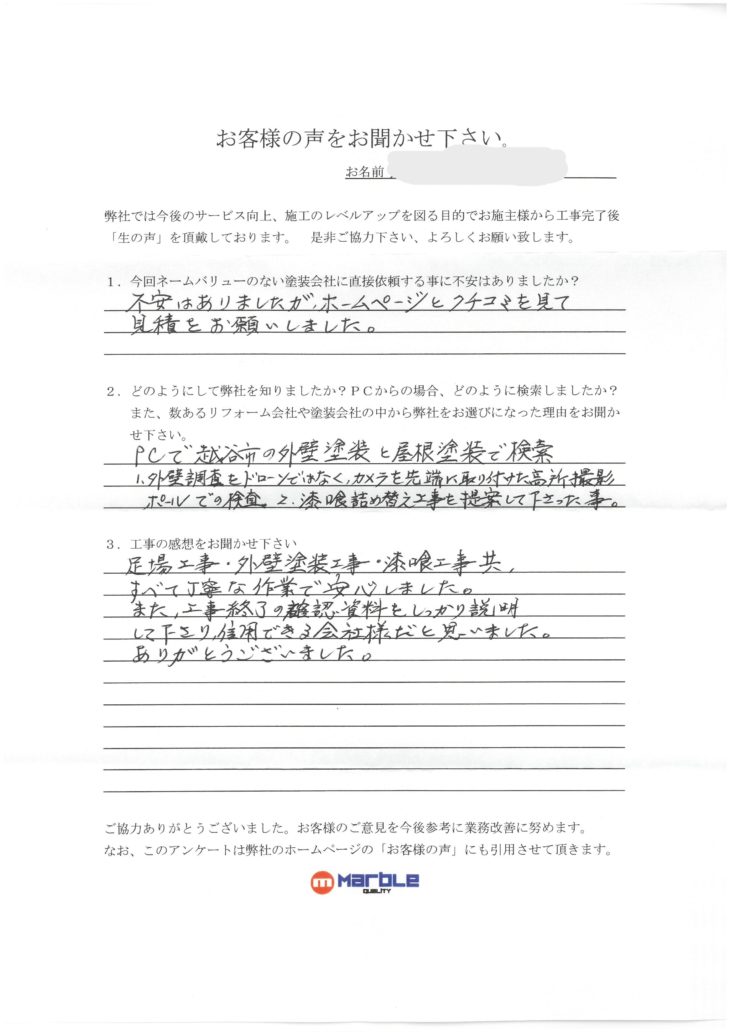 お客様の声をお聞かせ下さい。
お名前
弊社では今後のサービス向上、施工のレベルアップを図る目的でお施主様から工事完了後
「生の声」を頂戴しております。　是非ご協力下さい、よろしくお願い致します。
１．今回ネームバリューのない塗装会社に直接依頼する事に不安はありましたか？
不安はありましたが、ホームページとクチコミを見て
見積をお願いしました。
２．どのようにして弊社を知りましたか？ＰＣからの場合、どのように検索しましたか？
また、数あるリフォーム会社や塗装会社の中から弊社をお選びになった理由をお聞か
せ下さい。
PCで越谷市の外壁塗装と屋根塗装で検索
1.外壁調査をドローンではなく、カメラを先端に取り付けた高所撮影
ポールでの検査。2.漆喰詰め替え工事を提案して下さった事。
３．工事の感想をお聞かせ下さい
足場工事・外壁塗装工事・漆喰工事共、
すべて丁寧な作業で安心しました。
また、工事終了の確認資料をしっかり説明
して下さり、信用できる会社様だと思いました。
ありがとうございました。
ご協力ありがとうございました。お客様のご意見を今後参考に業務改善に努めます。
なお、このアンケートは弊社のホームページの「お客様の声」にも引用させて頂きます。
m Marble
QUALITY